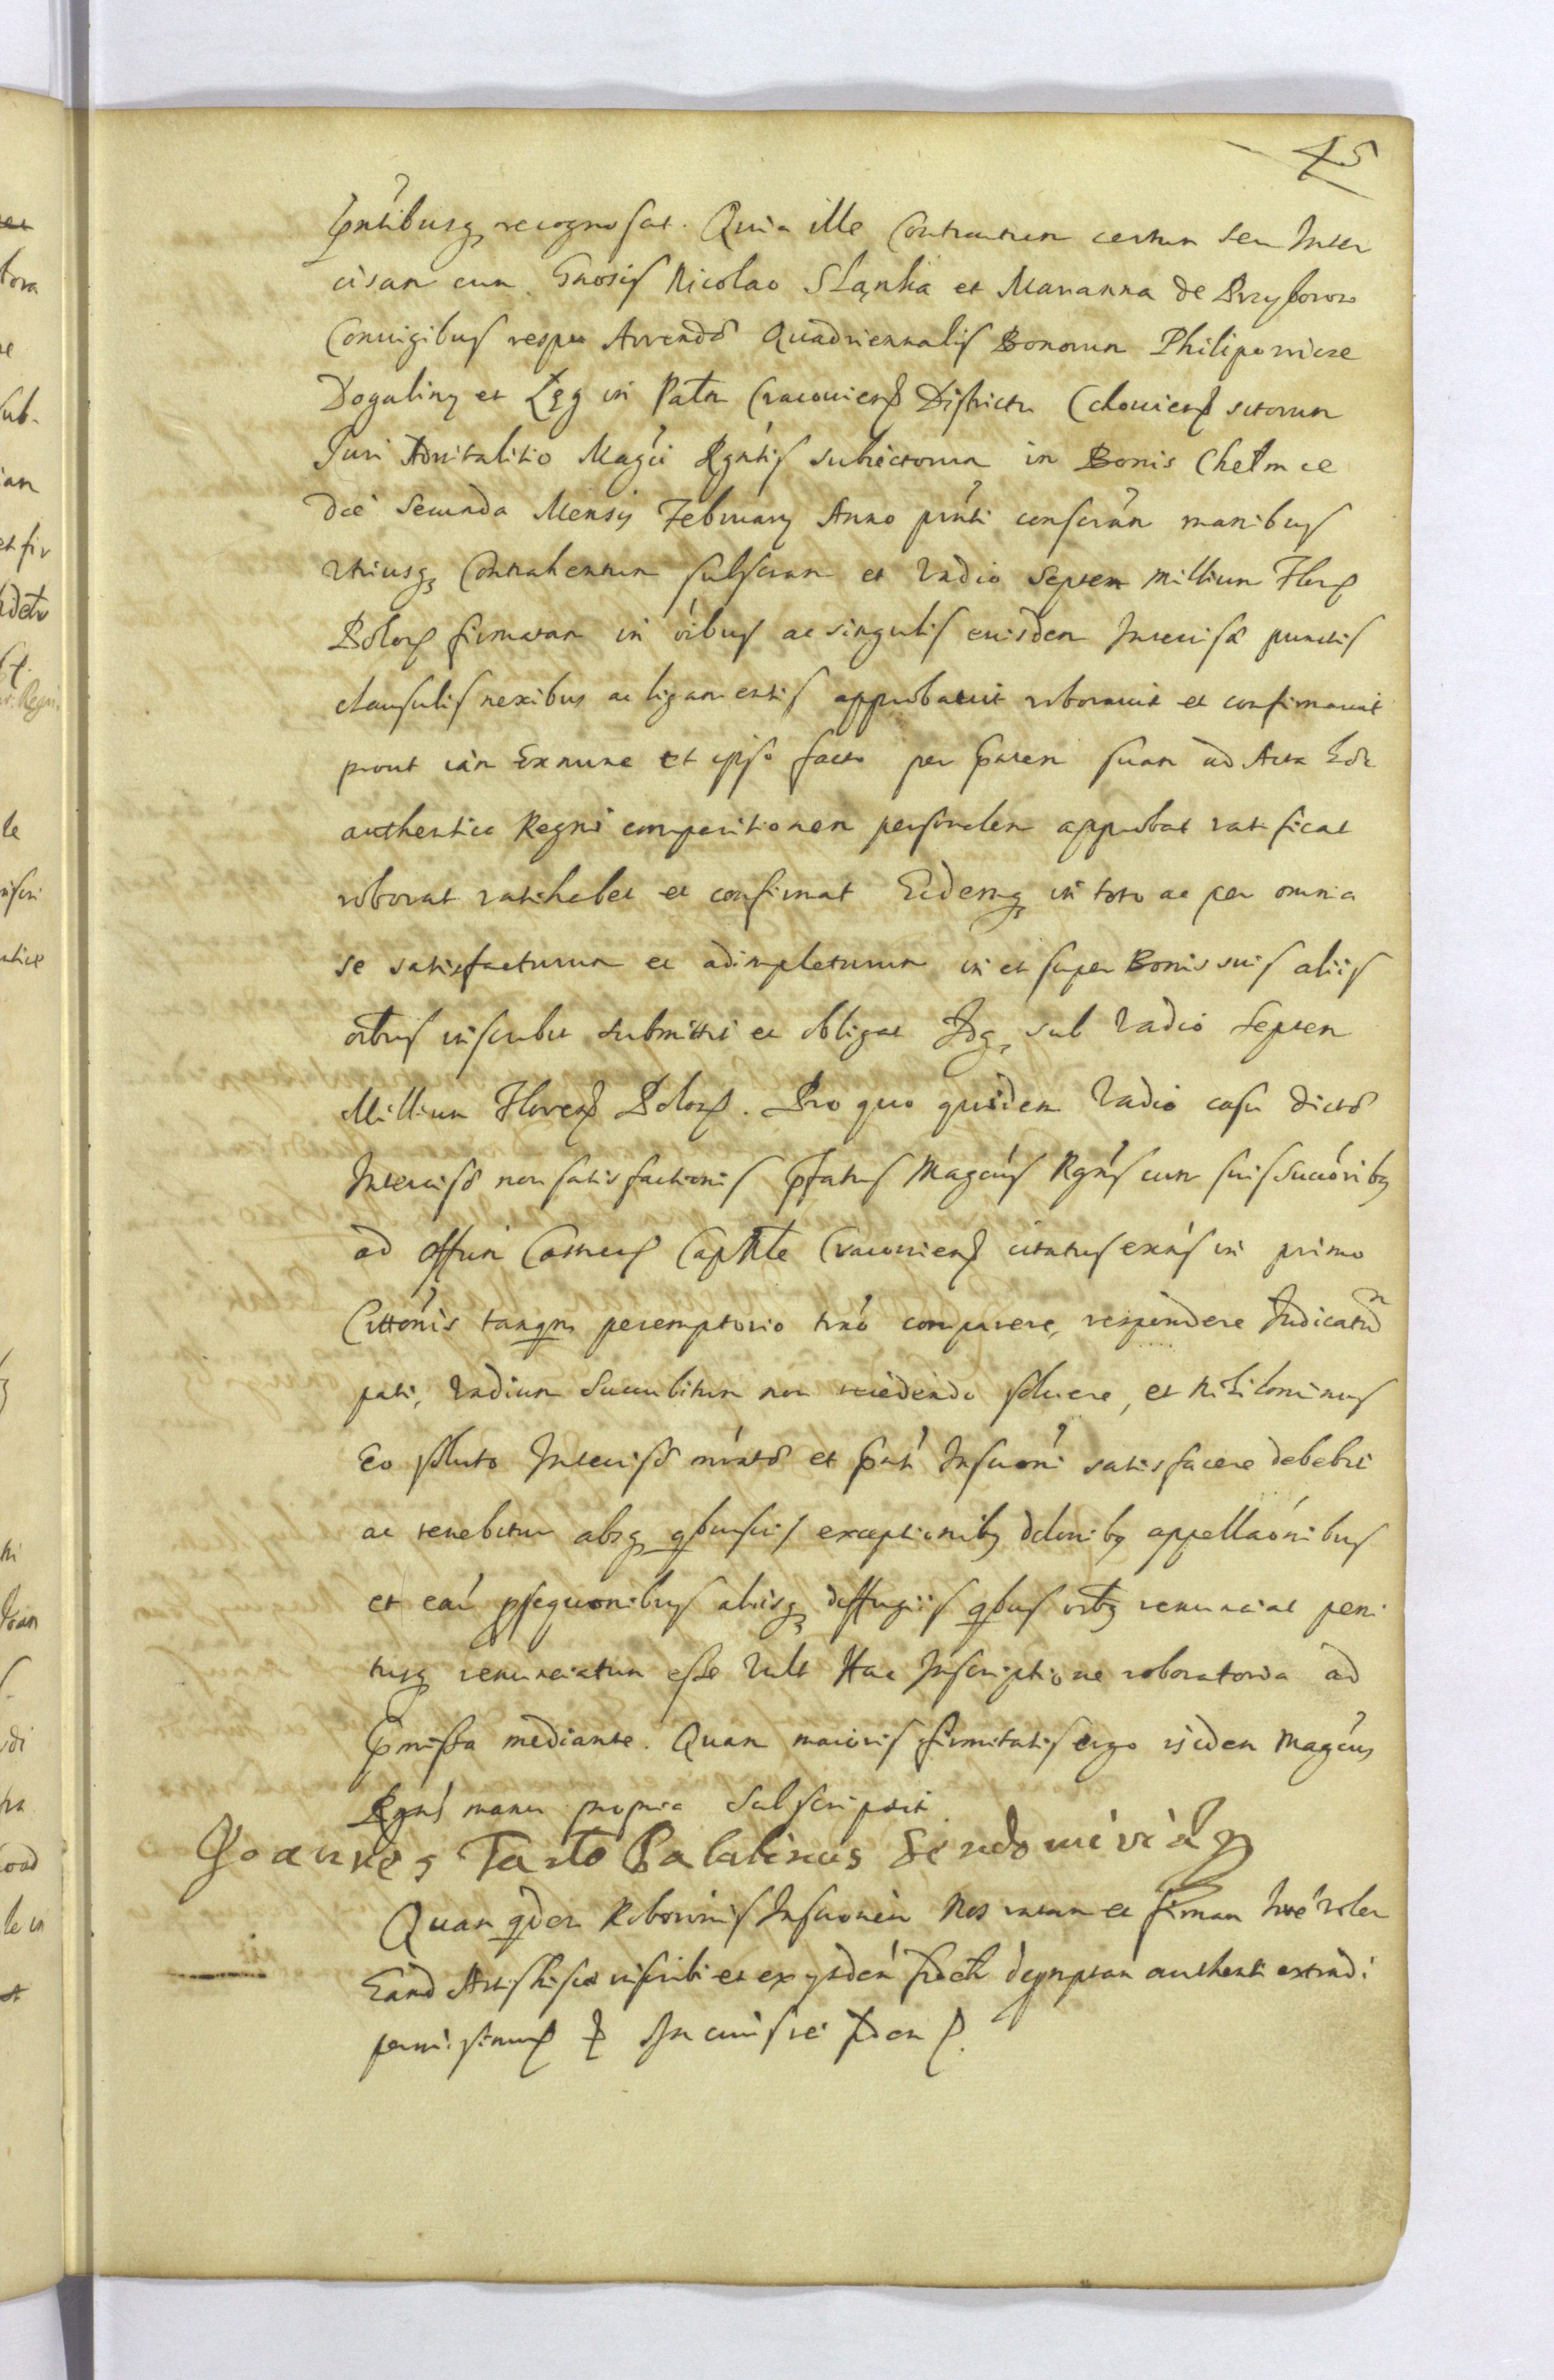 45
Pntibusq recognoscat. Quia ille Contractum certum seu Inter
cisam cum Gnosis Nicolao Słąnka et Marianna de Przyborow
Coniugibus respu Arrendæ Quadriennalis Bonorum Philipowice
Dogaliny et Łęg in Pala Cracouien Districtu Xchouien sitorum
Juri Aduitalitio Magci Rgntis subiectorum in Bonis Chełmce
die Secunda Mensis February Anno prnti conscram manibus
vtriusq Contrahentium subscram et Vadio Septem millium Flor
Polor firmatam in oibus ac singulis euisdem Intercisæ punctis
clausulis nexibus ac ligamentis approbauit roborauit et confirmauit
prout iam Exnunc et ipso facto per Pntem suam ad Acta hæc
authentica Regni comparitionem personalem approbat ratificat
roborat ratihabet et confirmat Eidemq in toto ac per omnia
se satisfacturum et adimpleturum in et super Bonis suis aliis
oibus inscribit submittit et obligat Idq sub Vadio Septem
Millium Floren Polor. Pro quo quidem Vadio casu dictæ
Intercisæ non satisfactionis Pfatus Magcus Rgns cum suis Succoribq
ad Offm Castren Capitle Cracouien citatus exns in primo
Cittonis tanqm peremptorio trno comparere, respondere Judicatum
pati, Vadium Succubitum non recedendo soluere, et nihilominus
Eo soluto Intercisæ mntæ et Pnti Inscroni satisfacere debebit
ac tenebitur absq qbusuis exceptionibq dilonibq appellaonibus
et ear psequonibus aliisq diffugiis qbus oibq renunciat peni
tusq renunciatum esse Vult Hac Inscriptione roboratoria ad
Pmissa mediante. Quam maioris firmitatis ergo isdem Magcus
Rgns manu propria subscripsit
Joannes Tarlo Palatinus Sendomirien
Quam qdem Roboronis Inscronem Nos ratam et firman hre volen
Eand Actis hisce inscribi et ex ysdem
permisimus